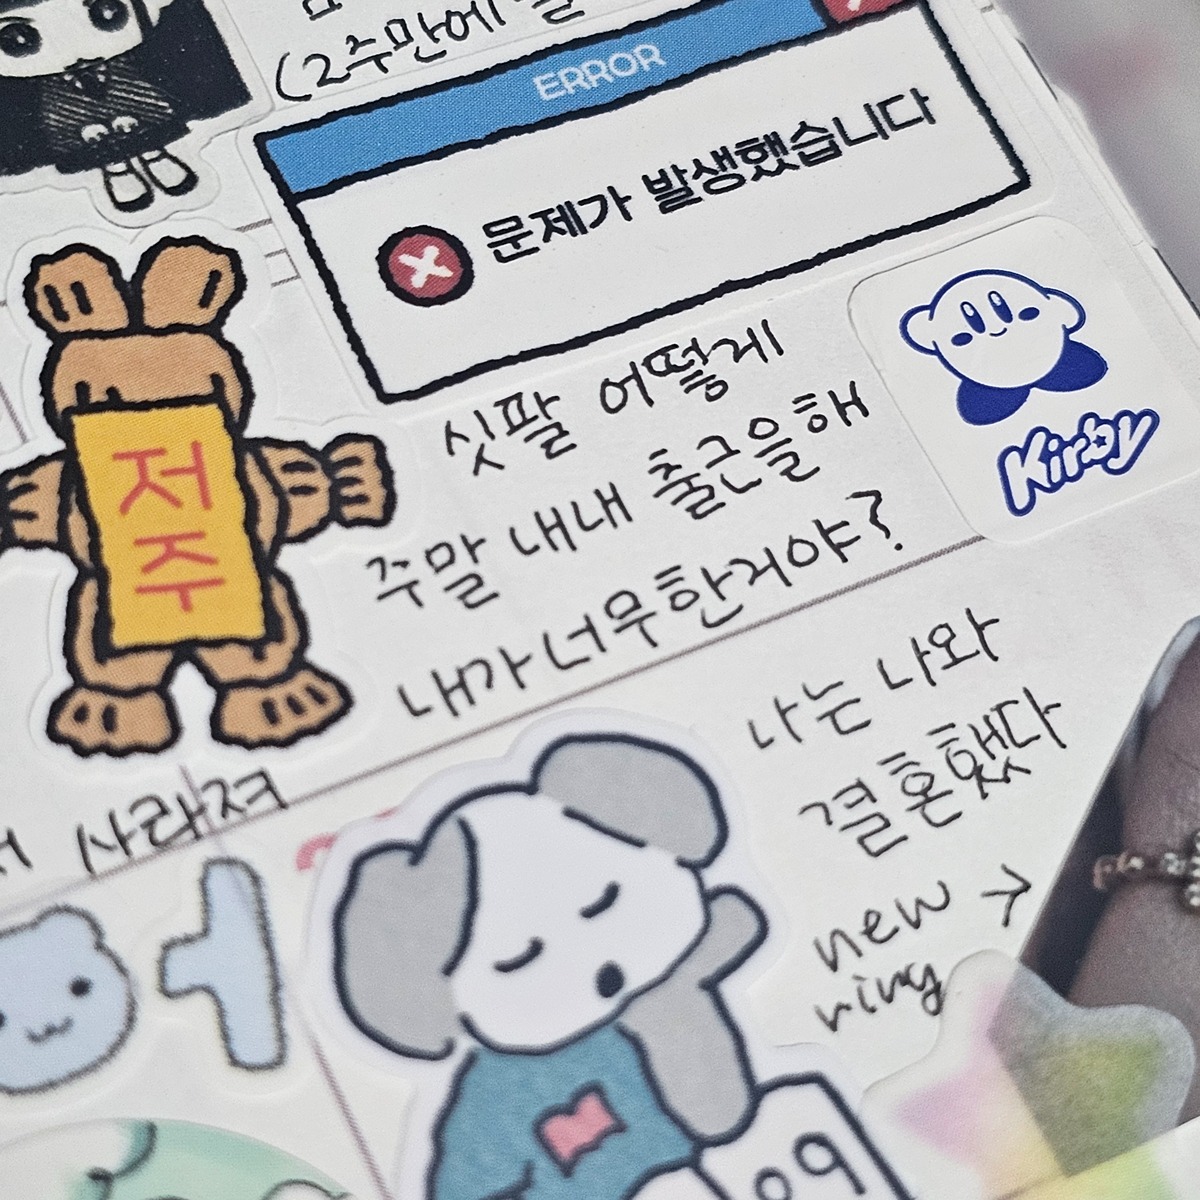 (2주만에
ERROR
문제가 발생했습니다
저
주
Kirby
싯팔 어떻게
주말 내내 출근을해
내가 너무한거야?
사라져
나는 나와
결혼했다
new →
ring
09